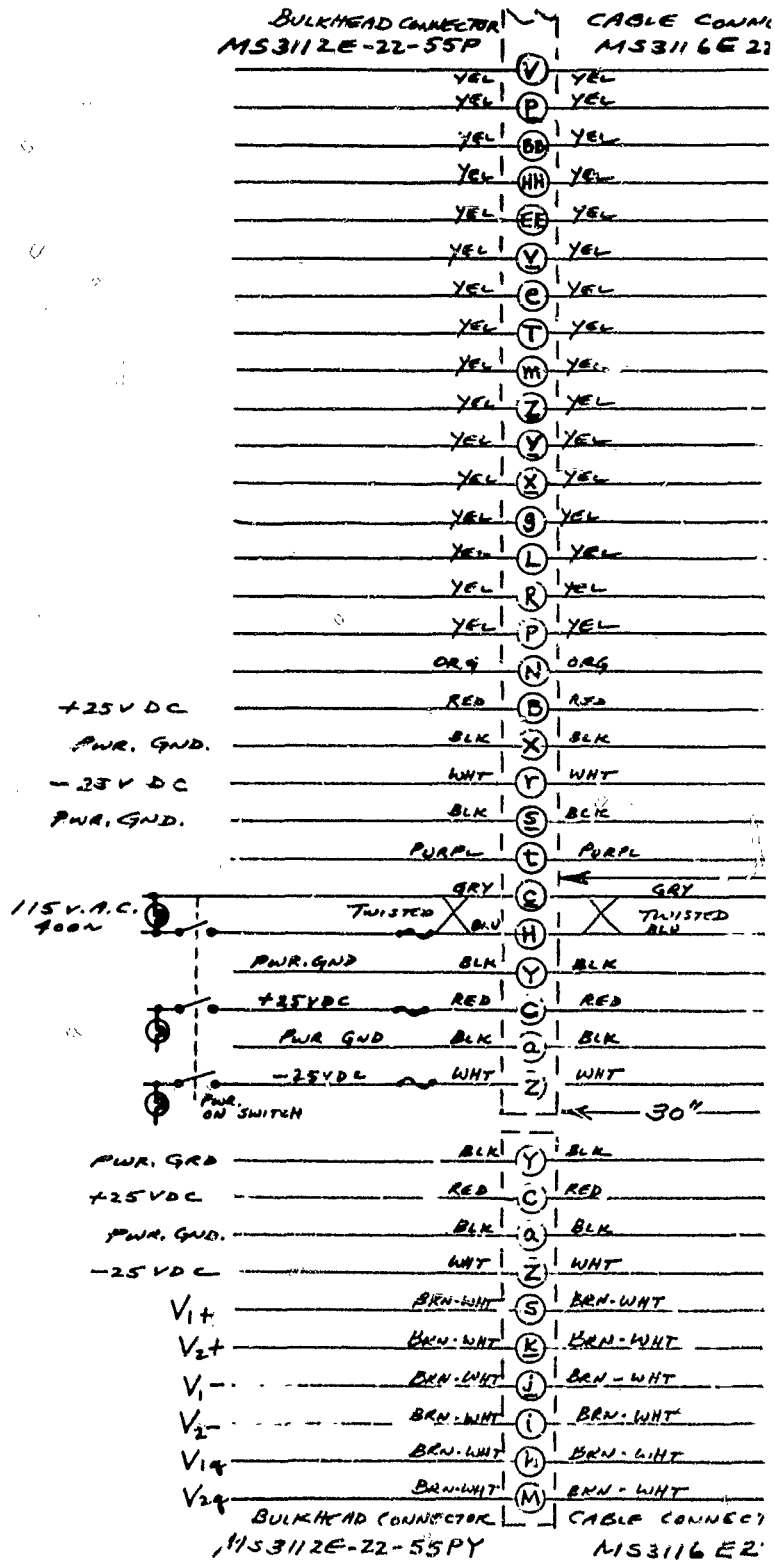 BULKHEAD CONNECTOR CABLE
MS3112E-22-55P MS3116E
YEL V
YEL P YEL
YEL BB YEL
YEL HH YEL
YEL EE YEL
YEL V YEL
YEL e YEL
YEL T YEL
YEL m YEL
YEL Z YEL
YEL Y YEL
YEL X YEL
YEL g YEL
YEL L YEL
YEL R YEL
YEL P YEL
ORG N ORG
+25V DC RED B RED
PWR. GND. BLK X BLK
-25V DC WHT r WHT
PWR. GND. BLK s BLK
PURPL t PURPL
GRY c GRY
115 V.A.C. TWISTED BLU H TWISTED
400N BLU
PWR.GND BLK Y BLK
+25VDC RED C RED
PWR GND BLK a BLK
-25VDC WHT Z WHT
PWR.
ON SWITCH 30"
PWR. GRD BLK Y BLK
+25VDC RED C RED
PWR. GND. BLK a BLK
-25VDC WHT Z WHT
V1+ BRN-WHT S BRN-WHT
V2+ BRN-WHT k BRN-WHT
V1- BRN-WHT j BRN-WHT
V2- BRN-WHT i BRN-WHT
V1q BRN-WHT h BRN-WHT
V2q BRN-WHT M BRN-WHT
BULKHEAD CONNECTOR CABLE
MS3112E-22-55PY MS3116